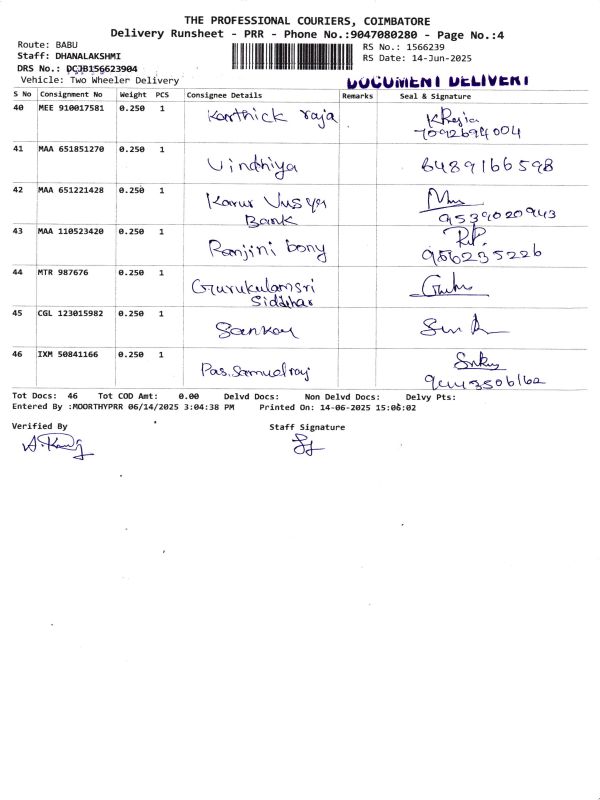 THE PROFESSIONAL COURIERS, COIMBATORE
Delivery Runsheet - PRR - Phone No.:9047080280 - Page No.:4
Route: BABU
RS No.: 1566239
Staff: DHANALAKSHMI
RS Date: 14-Jun-2025
DRS No.: DCJB156623904
Vehicle: Two Wheeler Delivery
DOCUMENT DELIVERY
S No Consignment No Weight PCS Consignee Details Remarks Seal & Signature
40 MEE 910017581 0.250 1 Karthick raja
7092694004
41 MAA 651851270 0.250 1 Vindhiya 6489166598
42 MAA 651221428 0.250 1 Karur Vysya
Bank 9539020943
43 MAA 110523420 0.250 1 Ranjini bony R.P.
9562355226
44 MTR 987676 0.250 1 Gurukulamsri
Siddhar
45 CGL 123015982 0.250 1 Sankar
46 IXM 50841166 0.250 1 Pas.Samudraj
Tot Docs: 46 Tot COD Amt: 0.00 Delvd Docs: Non Delvd Docs: Delvy Pts:
Entered By :MOORTHYPRR 06/14/2025 3:04:38 PM Printed On: 14-06-2025 15:06:02
Verified By Staff Signature